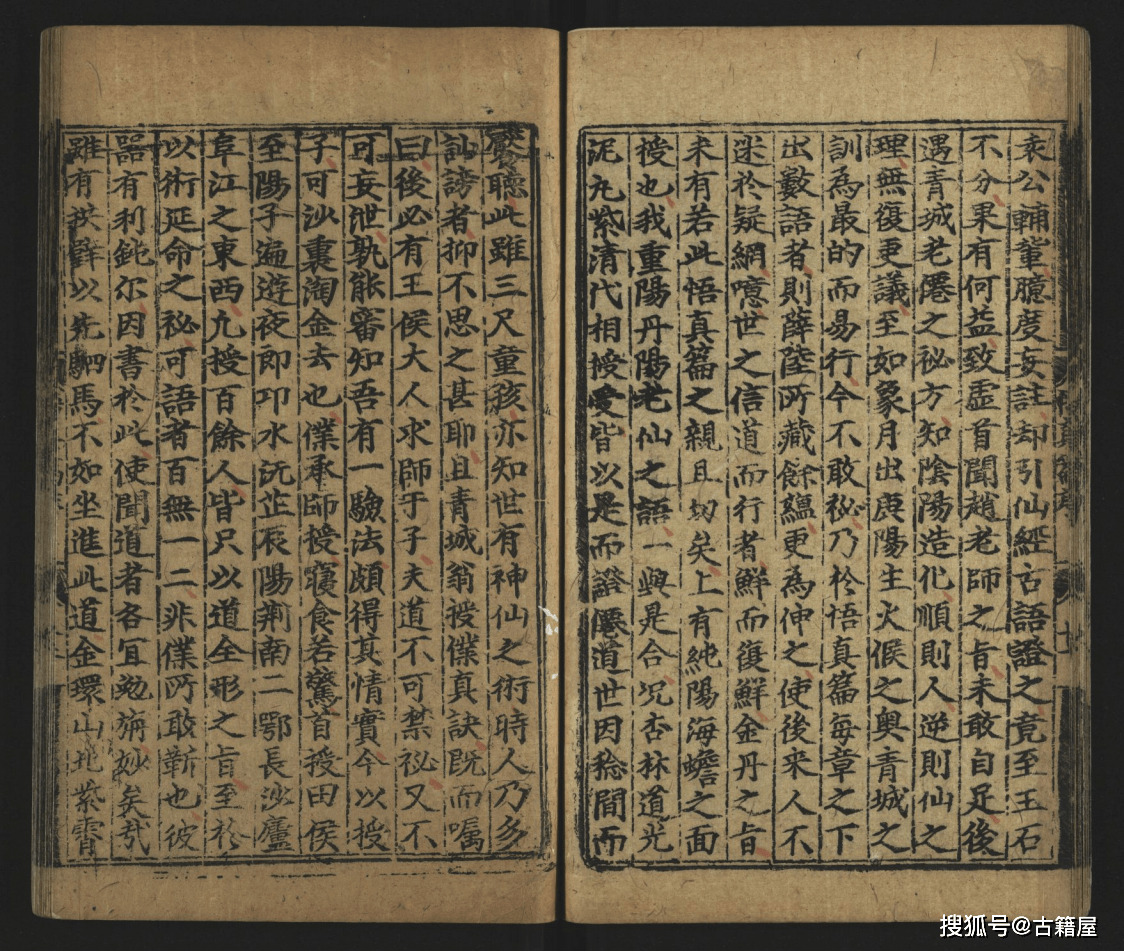 袁公輔輩臆度妄註却引仙經古語證之竟至玉石
不分果有何益致虛首聞趙老師之旨未敢自足後
遇青城老僊之祕方知陰陽造化順則人逆則仙之
理無復更議至如象月出庚陽生火候之奧青城之
訓為最的而易行今不敢祕乃於悟真篇每章之下
出數語者則薛陸所藏餘蘊更為伸之使後來人不
迷於疑網噫世之信道而行者鮮而復鮮金丹之旨
未有若此悟真篇之親且切矣上有純陽海蟾之面
授也我重陽丹陽老仙之語一與是合况杏林道光
泥丸紫清代相授受皆以是而證僊道世因稔間而
饜聽此雖三尺童孩亦知世有神仙之術時人乃多
訕謗者抑不思之甚耶且青城翁授僕真訣既而囑
曰後必有王侯大人求師于子夫道不可禁祕又不
可妄泄孰能審知吾有一驗法頗得其情實今以授
子可沙裏淘金去也僕承師授寢食若驚首授田侯
至陽子遍遊夜郎卭水沅芷辰陽荆南二鄂長沙廬
阜江之東西凢授百餘人皆只以道全形之旨至於
以術延命之祕可語者百無一二非僕所敢靳也彼
器有利鈍尔因書於此使聞道者各冝勉旃妙矣㢤
雖有拱璧以先駟馬不如坐進此道金環山北紫霄
搜狐号@古籍屋